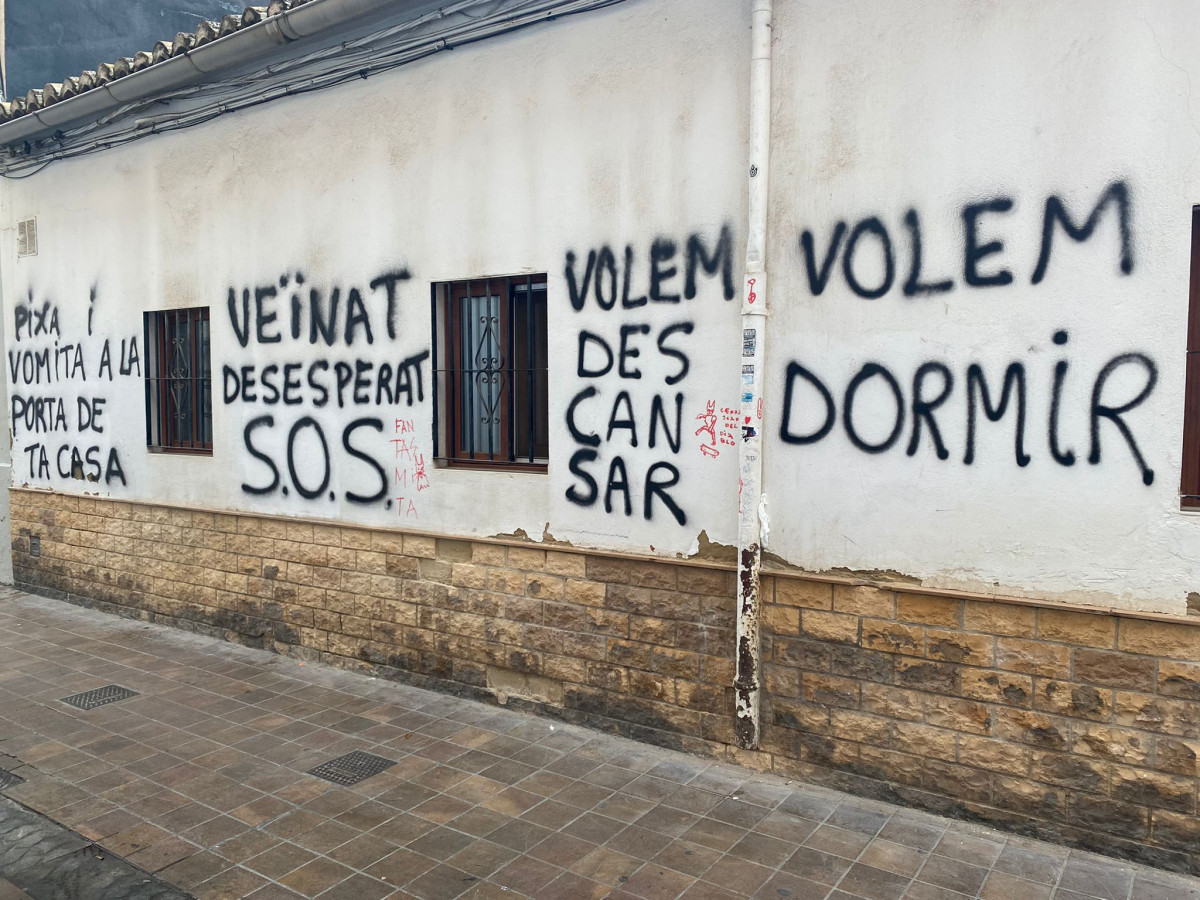 PiXA i
VOMiTA A LA
PORTA DE
TA CASA
VEÏNAT
DESESPERAT
S.O.S.
FAN
TAS
Mi
TA
VOLEM
DES
CAN
SAR
VOLEM
DORMiR